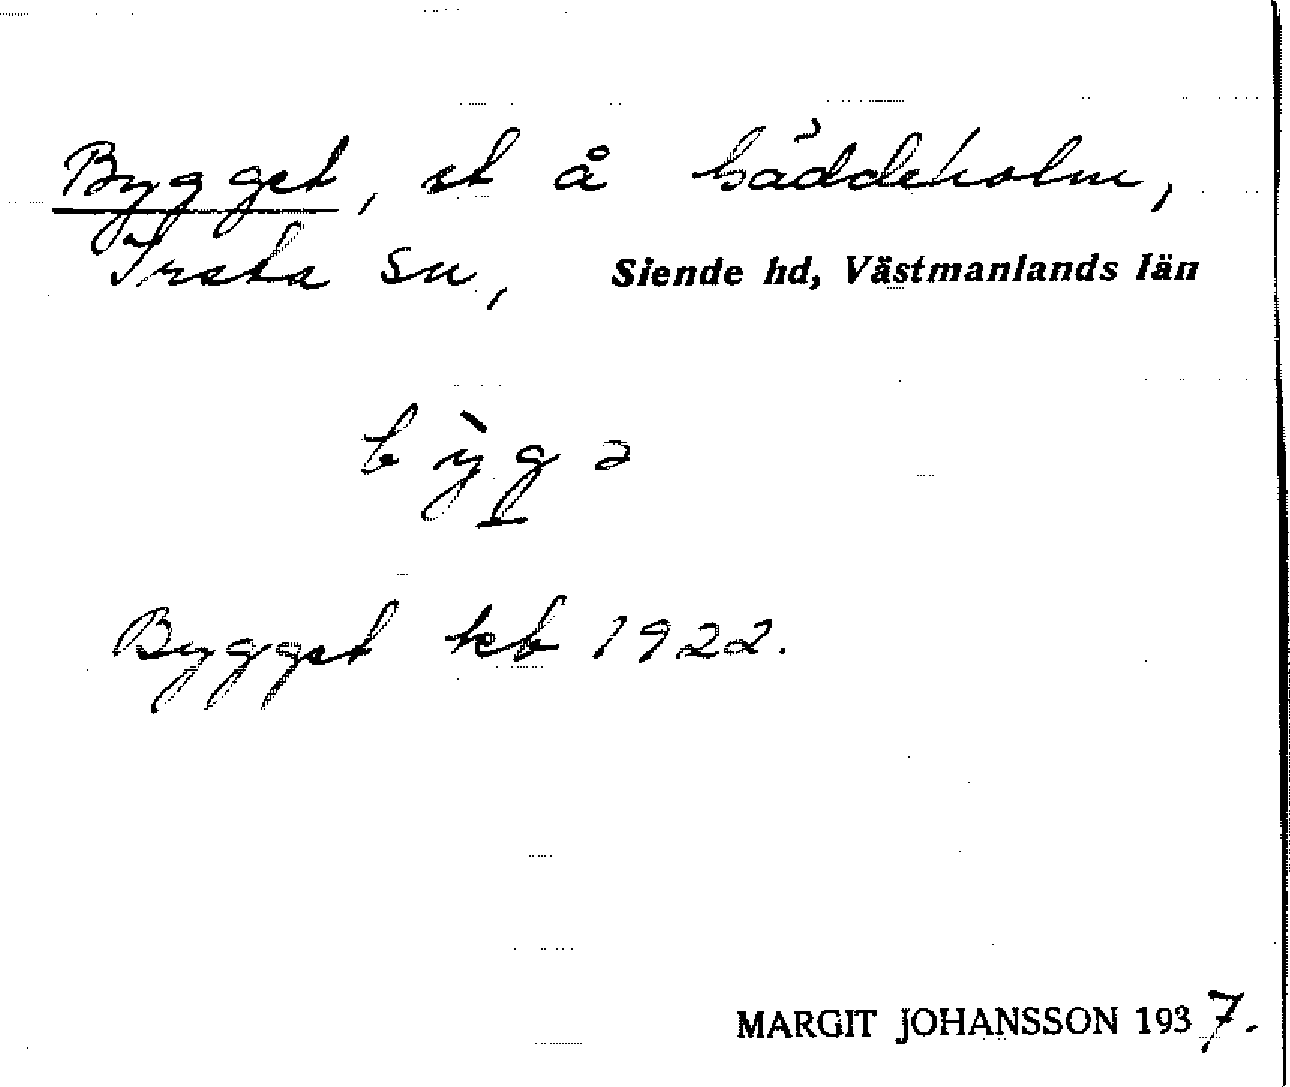 Bygget, st å Gäddeholm,
Irsta Sn, Siende hd, Västmanlands län
bỳgə
Bygget kb 1922.
MARGIT JOHANSSON 1937.